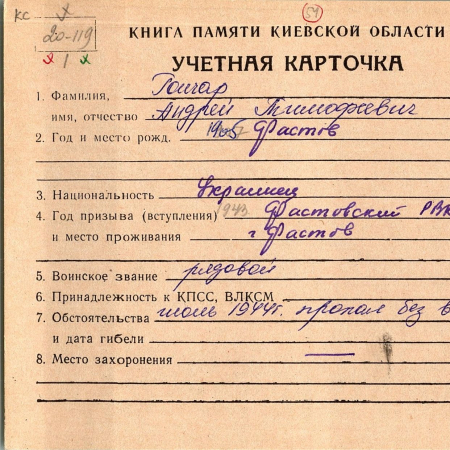 КС
51
20-119
1
КНИГА ПАМЯТИ КИЕВСКОЙ ОБЛАСТИ
УЧЕТНАЯ КАРТОЧКА
1. Фамилия, Гончар
имя, отчество Андрей Тимофеевич
2. Год и место рожд. 1905 Фастов
3. Национальность украинец
4. Год призыва (вступления) 1943 Фастовский РВК
и место проживания г Фастов
5. Воинское звание рядовой
6. Принадлежность к КПСС, ВЛКСМ
7. Обстоятельства июль 1944г. пропал без в
и дата гибели
8. Место захоронения —